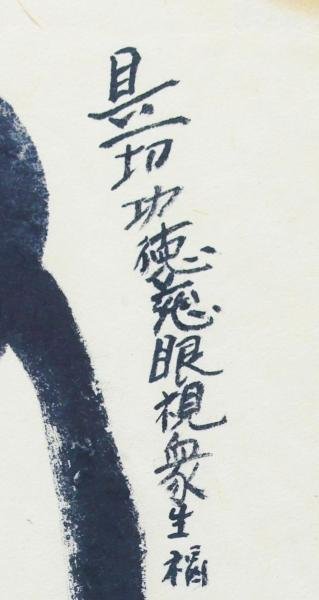 具一切功徳慈眼視衆生福